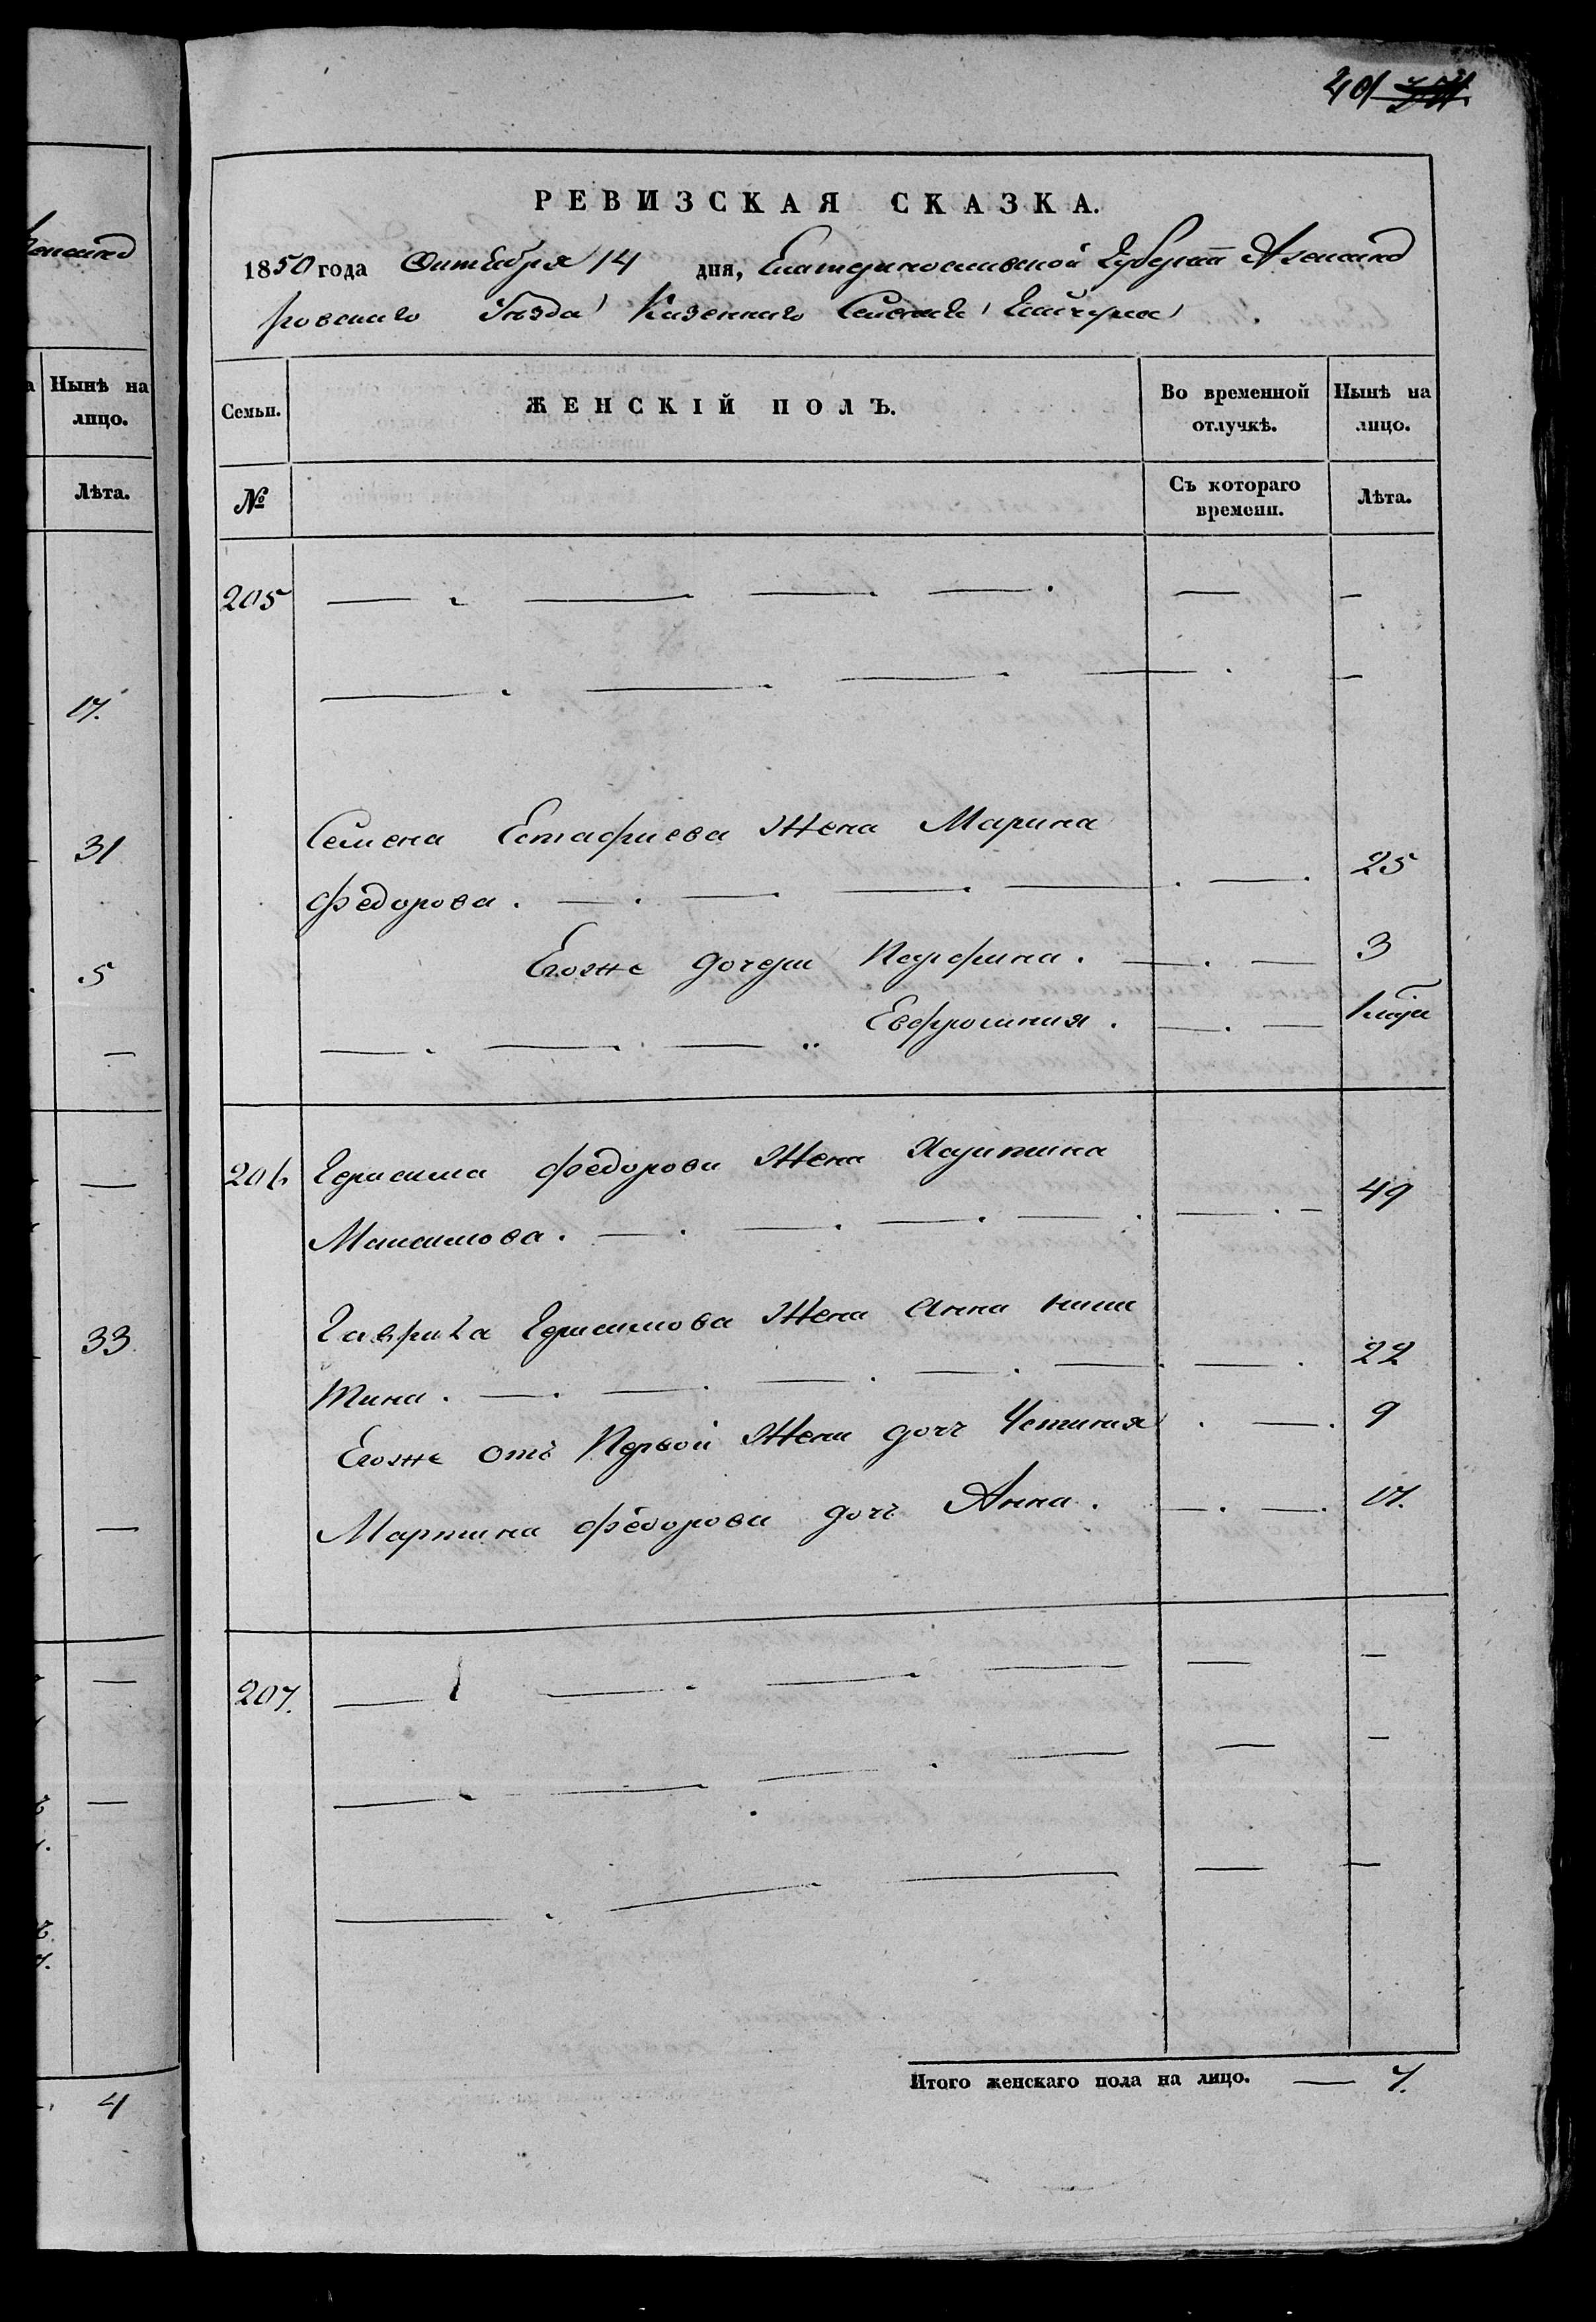 401
РЕВИЗСКАЯ СКАЗКА.
1850 года Октября 14 дня, Екатеринославской Губернiи Александ
ровскаго Уезда Казеннаго Селенiя Гайчула
Семьи. ЖЕНСКIЙ ПОЛЪ. Во временной отлучкѣ. Нынѣ на лицо.
№ Съ котораго времени. Лѣта.
205
Семена Естафиева Жена Марина
Федорова. 25
Егоже дочери Парфина. 3
Евфросиния. 1 года
206 Герасима Федорова Жена Харитина
Максимова. 49
Гаврила Герасимова Жена Анна Ники
тина. 22
Егоже отъ Первой Жены дочь Устиния 9
Мартина Федорова дочь Анна. 17.
207.
Итого женскаго пола на лицо. 7.
Нынѣ на лицо.
Лѣта.
17.
31
5
33
4